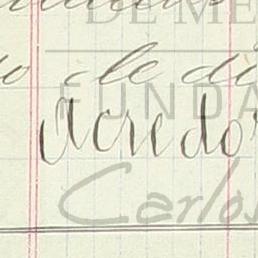 DE ME
o de di
FUNDA
Acredo
Carlos